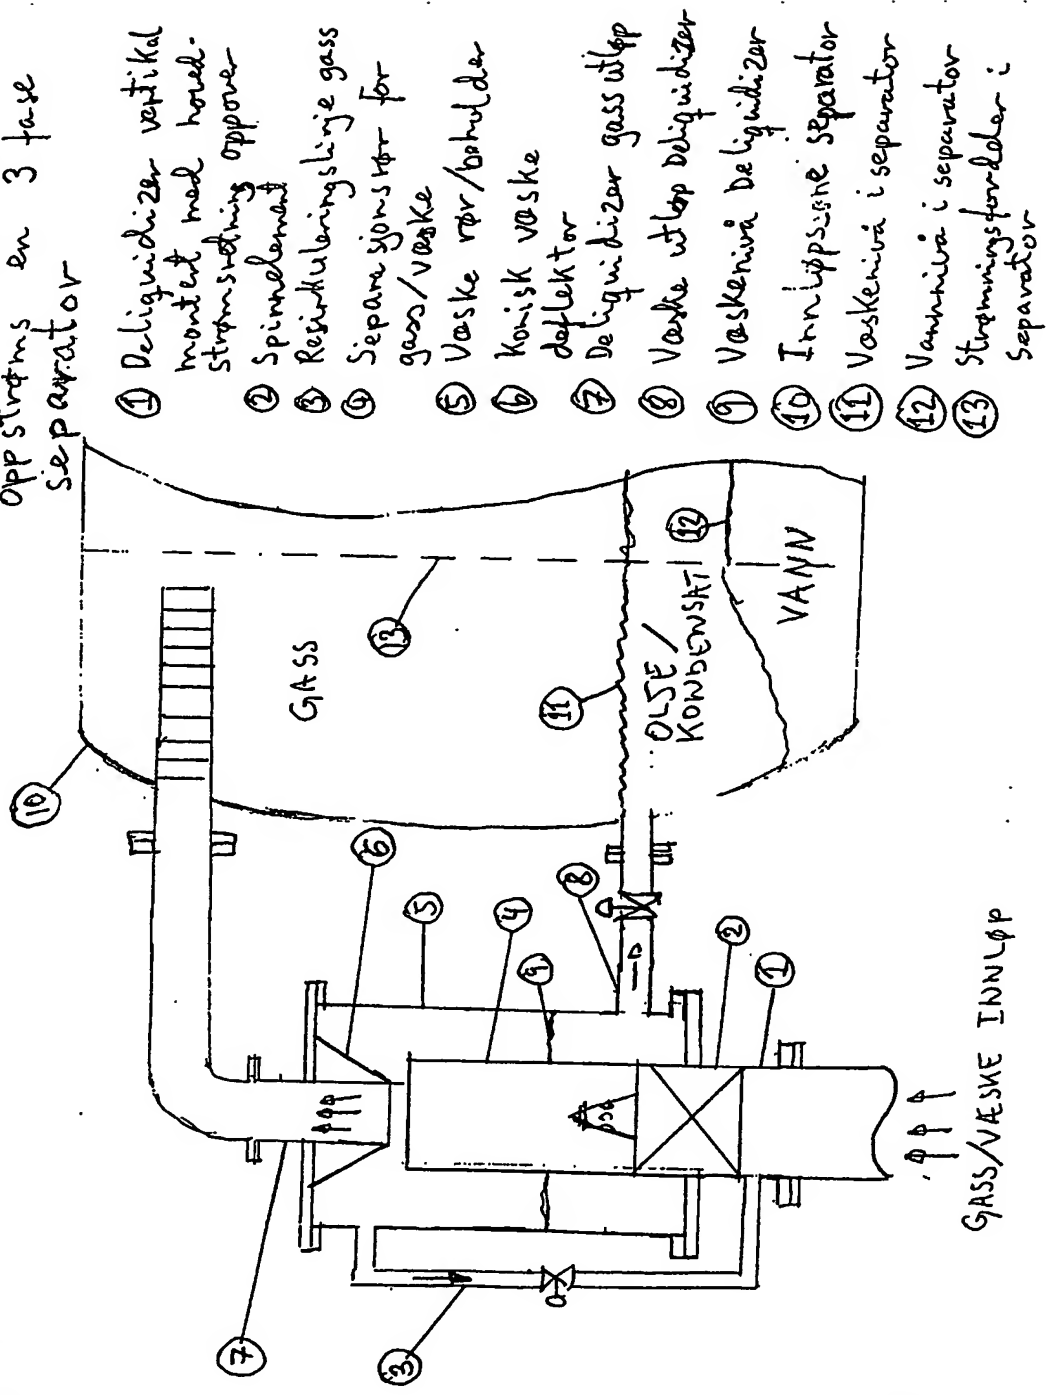 oppstrøms en 3 fase
separator
① Deliquidizer vertikal
montert med hoved-
strømsretning oppover
② Spinnelement
③ Resirkuleringslinje gass
④ Separasjonsrør for
gass/væske
⑤ Væske rør/beholder
⑥ Konisk væske
deflektor
⑦ Deliquidizer gass utløp
⑧ Væske utløp Deliquidizer
⑨ Væskenivå Deliquidizer
⑩ Innløpssone separator
⑪ Væskenivå i separator
⑫ Vannivå i separator
⑬ Strømningsfordeler i
separator
⑩
GASS
⑬
⑪
OLJE/
KONDENSAT
⑫
VANN
⑥
⑤
④
⑨
⑧
②
①
⑦
③
GASS/VÆSKE INNLØP